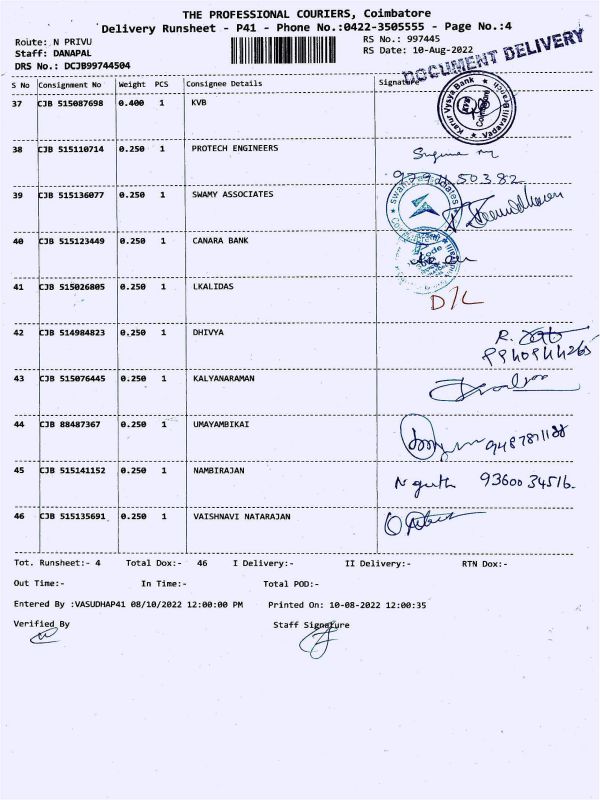 THE PROFESSIONAL COURIERS, Coimbatore
Delivery Runsheet - P41 - Phone No.:0422-3505555 - Page No.:4
Route: N PRIVU
RS No.: 997445
Staff: DANAPAL
RS Date: 10-Aug-2022
DRS No.: DCJB99744504
DOCUMENT DELIVERY
S No Consignment No Weight PCS Consignee Details Signature
37 CJB 515087698 0.400 1 KVB
Karur Vysya Bank Vadavalli Branch KVB Coimbatore
38 CJB 515110714 0.250 1 PROTECH ENGINEERS
39 CJB 515136077 0.250 1 SWAMY ASSOCIATES
Swamy Associates
40 CJB 515123449 0.250 1 CANARA BANK
41 CJB 515026805 0.250 1 LKALIDAS D/L
42 CJB 514984823 0.250 1 DHIVYA
9940944265
43 CJB 515076445 0.250 1 KALYANARAMAN
44 CJB 88487367 0.250 1 UMAYAMBIKAI
45 CJB 515141152 0.250 1 NAMBIRAJAN 93600 34516
46 CJB 515135691 0.250 1 VAISHNAVI NATARAJAN
Tot. Runsheet:- 4 Total Dox:- 46 I Delivery:- II Delivery:- RTN Dox:-
Out Time:- In Time:- Total POD:-
Entered By :VASUDHAP41 08/10/2022 12:00:00 PM Printed On: 10-08-2022 12:00:35
Verified By Staff Signature